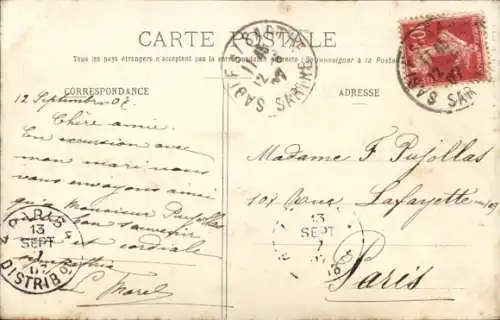 CARTE POSTALE
Tous les pays étrangers n'acceptent pas la correspondance au recto (Se renseigner à la Poste)
CORRESPONDANCE
ADRESSE
12 Septembre 07.
Chère amie.
En excursion avec
mon mari nous
vous envoyons ainsi
qu'à Monsieur Pujollas
bon souvenir
et cordiale
sympathie
L. Morel
Madame F Pujollas
107 Rue Lafayette
Paris
SABLÉ SARTHE
12
07
10
SABLÉ SARTHE
12
07
PARIS
13
SEPT
07
DISTRIB
13
SEPT